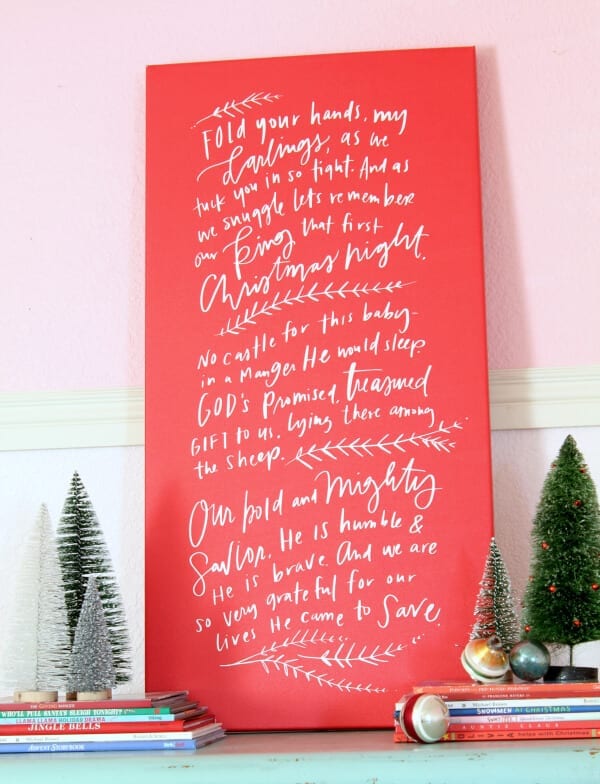 FOLD your hands, my
darlings, as we
tuck you in so tight. And as
we snuggle lets remember
our King that first
Christmas night.
No castle for this baby-
in a Manger He would sleep.
GOD's Promised, treasured
GIFT to us, lying there among
the sheep.
Our bold and Mighty
Savior. He is humble &
He is brave. And we are
so very grateful for our
lives He came to Save.
LLAMA LLAMA HOLIDAY DRAMA
JINGLE BELLS
ADVENT STORYBOOK
SNOWMEN AT CHRISTMAS
helps with Christmas